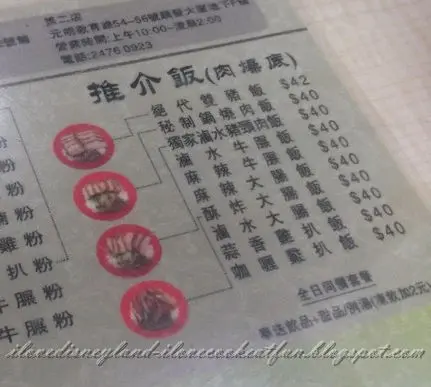 第二店
元朗教育路54-56號
營業時間:上午10:00-凌晨2:00
電話:2476 0923
推介飯(肉爆底)
絕代雙豬飯 $42
秘制鍋燒肉飯 $40
獨家滷水豬頭肉飯 $40
滷水牛腸飯 $40
麻辣牛腸飯 $40
麻辣大腸飯 $40
酥炸大腸飯 $40
滷水大腸飯 $40
蒜香雞扒飯 $40
咖喱雞扒飯 $40
粉
粉
粉
粉
雞粉
扒粉
牛腸粉
牛腸粉
全日同價套餐
飲品+甜品/例湯(凍飲加2元)
ilovedisneyland-ilovecookeatfun.blogspot.com